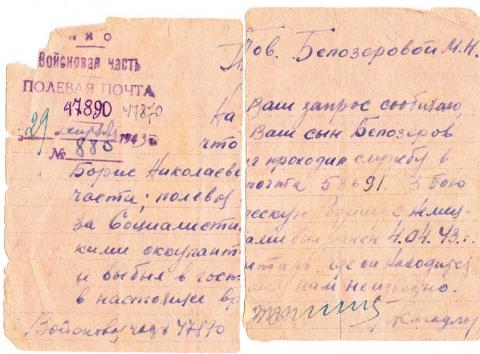 НКО
Войсковая часть
ПОЛЕВАЯ ПОЧТА
47890 47890
29 апреля 1943 г.
№ 880
Тов. Белозеровой М.Н.
На Ваш запрос сообщаю,
что Ваш сын Белозеров
Борис Николаеви проходил службу в
части; полевая почта 53691. В бою
за Социалисти ческую Родину с немец-
кими оккупант ами был ранен 4.04.43 г.
и выбыл в госп италь где он находится
в настоящее вр нам неизвестно.
Войсковая часть 47890